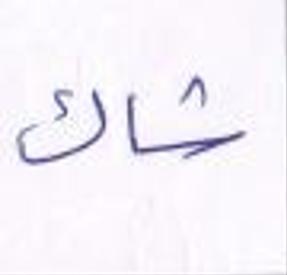 شاك